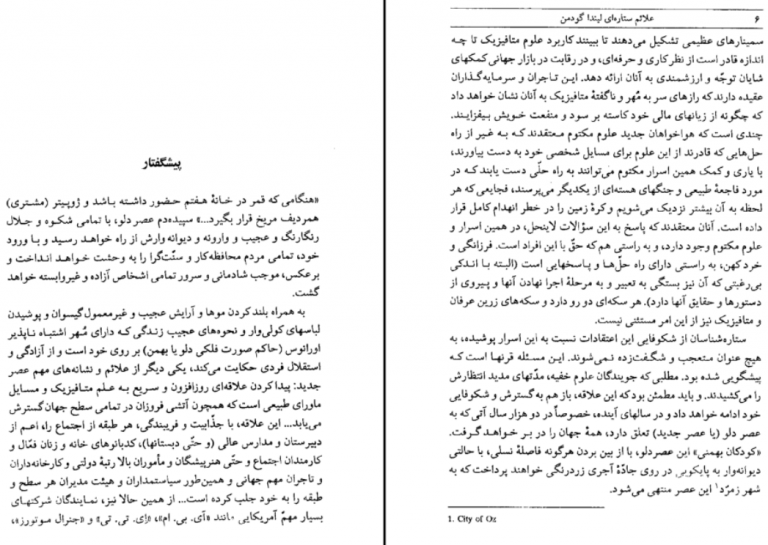 پیشگفتار
«هنگامی که قمر در خانهٔ هفتم حضور داشته باشد و ژوپیتر (مشتری)
همردیف مریخ قرار بگیرد...» سپیده‌دم عصر دلو، با تمامی شکوه و جلال
رنگارنگ و عجیب و وارونه و دیوانه وارش از راه خواهد رسید و با ورود
خود، تمامی مردم محافظه‌کار و سنّت‌گرا را به وحشت خواهد انداخت و
برعکس، موجب شادمانی و سرور تمامی اشخاص آزاده و غیروابسته خواهد
گشت.
به همراه بلند کردن موها و آرایش عجیب و غیرمعمول گیسوان و پوشیدن
لباسهای کولی‌وار و نحوه‌های عجیب زندگی که دارای مُهر اشتباه ناپذیر
اورانوس (حاکم صورت فلکی دلو یا بهمن) بر روی خود است و از آزادگی و
استقلال فردی حکایت می‌کند، یکی دیگر از علائم و نشانه‌های مهم عصر
جدید: پیدا کردن علاقه‌ای روزافزون و سریع به علم متافیزیک و مسایل
ماورای طبیعی است که همچون آتشی فروزان در تمامی سطح جهان گسترش
می‌یابد... این علاقه، با جذّابیت و فریبندگی، هر طبقه از اجتماع راه اعم از
دبیرستان و مدارس عالی (و حتّی دبستانها)، کدبانوهای خانه و زنان فعّال و
کارمندان اجتماع و حتّی هنرپیشگان و مأموران بالا رتبهٔ دولتی و کارخانه‌داران
و تاجران مهم جهانی و همین‌طور سیاستمداران و هیئت مدیران هر سطح و
طبقه را به خود جلب کرده است... از همین حالا نیز، نمایندگان شرکتهای
بسیار مهمّ آمریکایی مانند «آی. بی. ام»، «اِی. تی. تی» و «جنرال موتورز»،
۶
علائم ستاره‌ای لیندا گودمن
سمینارهای عظیمی تشکیل می‌دهند تا ببینند کاربرد علوم متافیزیک تا چه
اندازه قادر است از نظر کاری و حرفه‌ای، و در رقابت در بازار جهانی کمکهای
شایان توجّه و ارزشمندی به آنان ارائه دهد. این تاجران و سرمایه‌گذاران
عقیده دارند که رازهای سر به مُهر و ناگفتهٔ متافیزیک به آنان نشان خواهد داد
که چگونه از زیانهای مالی خود کاسته بر سود و منفعت خویش بیفزایند.
چندی است که هواخواهان جدید علوم مکتوم معتقدند که به غیر از راه
حل‌هایی که قادرند از این علوم برای مسایل شخصی خود به دست بیاورند،
با یاری و کمک همین اسرار مکتوم می‌توانند به راه حلّی دست یابند که در
مورد فاجعهٔ طبیعی و جنگهای هسته‌ای از یکدیگر می‌پرسند، فجایعی که هر
لحظه به آن بیشتر نزدیک می‌شویم و کرهٔ زمین را در خطر انهدام کامل قرار
داده است. آنان معتقدند که پاسخ به این سؤالات لاینحل، در همین اسرار و
علوم مکتوم وجود دارد، و به راستی هم که حقّ با این افراد است. فرزانگی و
خرد کهن، به راستی دارای راه حلّ‌ها و پاسخهایی است (البته با اندکی
بی‌رغبتی که آن نیز بستگی به تعبیر و به مرحلهٔ اجرا نهادن آنها و پیروی از
دستورها و حقایق آنها دارد). هر سکه‌ای دو رو دارد و سکه‌های زرین عرفان
و متافیزیک نیز از این امر مستثنی نیست.
ستاره‌شناسان از شکوفایی این اعتقادات نسبت به این اسرار پوشیده، به
هیچ عنوان متعجب و شگفت‌زده نمی‌شوند. این مسئله قرنها است که
پیشگویی شده بود. مطلبی که جویندگان علوم خفیه، مدّتهای مدید انتظارش
را می‌کشیدند. و باید مطمئن بود که این علاقه، باز هم به گسترش و شکوفایی
خود ادامه خواهد داد و در سالهای آینده، خصوصاً در دو هزار سال آتی که به
عصر دلو (یا عصر جدید) تعلق دارد، همهٔ جهان را در بر خواهد گرفت.
«کودکان بهمنی» این عصر دلو، با از بین بردن هرگونه فاصلهٔ نسلی، با حالتی
دیوانه‌وار به پایکوبی در روی جادّهٔ آجری زردرنگی خواهند پرداخت که به
شهر زمرّد۱ این عصر منتهی می‌شود.
1. City of Oz